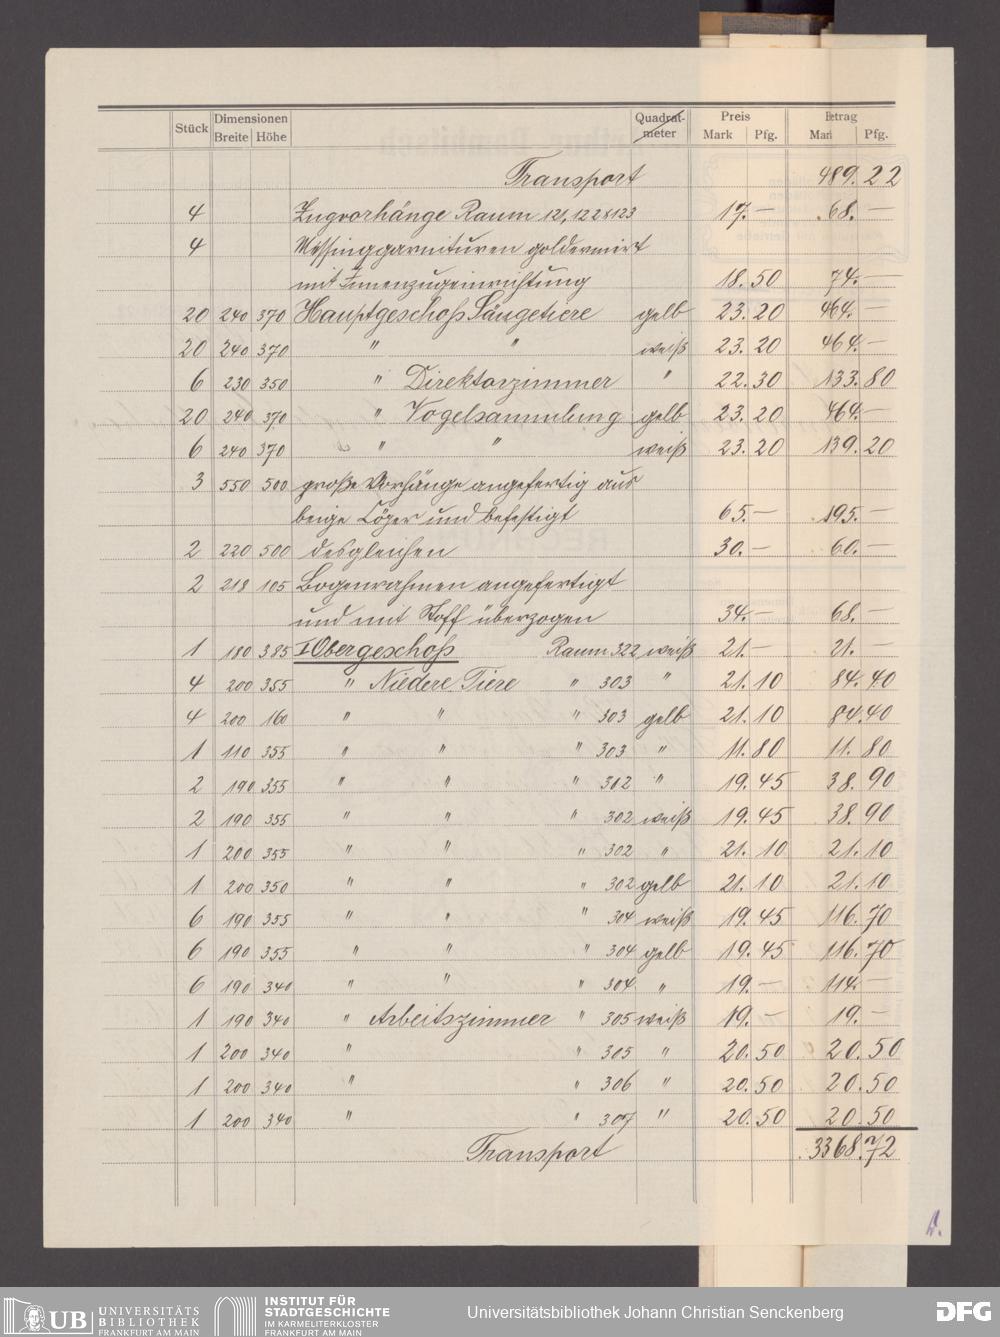 Stück Dimensionen Breite Höhe Quadrat-meter Preis Mark Pfg. Betrag Mark Pfg.
Transport 489. 22
4 Zugvorhänge Raum 121, 122 & 123 17. — 68. —
4 Messinggarnituren
mit Innenzugeinrichtung 18. 50 74. —
20 240 370 Hauptgeschoß Säugetiere gelb 23. 20 464. —
20 240 370 " " weiß 23. 20 464. —
6 230 350 " Direktorzimmer " 22. 30 133. 80
20 240 370 " Vogelsammlung gelb 23. 20 464. —
6 240 370 " " weiß 23. 20 139. 20
3 550 500 große Vorhänge angefertig aus
beige Köper und befestigt 65. — 195. —
2 220 500 desgleichen 30. — 60. —
2 218 105 Bogenrahmen angefertigt
und mit Stoff überzogen 34. — 68. —
1 180 385 I Obergeschoß Raum 322 weiß 21. — 21. —
4 200 355 " Niedere Tiere " 303 " 21. 10 84. 40
4 200 160 " " " 303 gelb 21. 10 84. 40
1 110 355 " " " 303 " 11. 80 11. 80
2 190 355 " " " 302 " 19. 45 38. 90
2 190 355 " " " 302 weiß 19. 45 38. 90
1 200 355 " " " 302 " 21. 10 21. 10
1 200 350 " " " 302 gelb 21. 10 21. 10
6 190 355 " " " 304 weiß 19. 45 116. 70
6 190 355 " " " 304 gelb 19. 45 116. 70
6 190 340 " " " 304 " 19. — 114. —
1 190 340 " Arbeitszimmer " 305 weiß 19. — 19. —
1 200 340 " " 305 " 20. 50 20. 50
1 200 340 " " 306 " 20. 50 20. 50
1 200 340 " " 307 " 20. 50 20. 50
Transport 3368. 72
UB UNIVERSITÄTS BIBLIOTHEK FRANKFURT AM MAIN
INSTITUT FÜR STADTGESCHICHTE IM KARMELITERKLOSTER FRANKFURT AM MAIN
Universitätsbibliothek Johann Christian Senckenberg
DFG